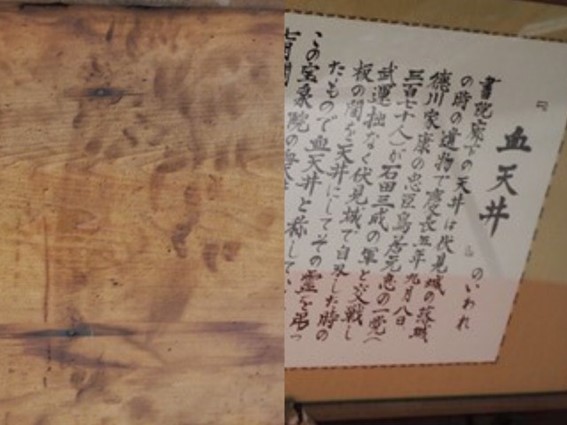 『血天井』のいわれ
書院の天井は伏見城の落城
の時の遺物で慶長五年九月八日
徳川家康の忠臣鳥居元忠の一党(
三百七十人)が石田三成の軍と交戦し
武運拙なく伏見城で自刃した時の
板の間を天井にしてその霊を弔っ
たもので血天井と称してい
この宝泉院の